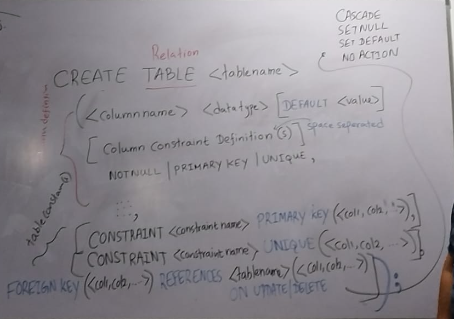 CASCADE
SET NULL
SET DEFAULT
NO ACTION
Relation
CREATE TABLE <tablename>
(<columnname> <datatype> [DEFAULT <value>]
[Column Constraint Definition(s) space separated
NOTNULL | PRIMARY KEY | UNIQUE,
[CONSTRAINT <constraint name> PRIMARY KEY (<col1, col2, ...>)],
[CONSTRAINT <constraint name> UNIQUE (<col1, col2, ...>)],
FOREIGN KEY (<col1, col2, ...>) REFERENCES <tablename> (<col1, col2, ...>)]
ON UPDATE/DELETE
);